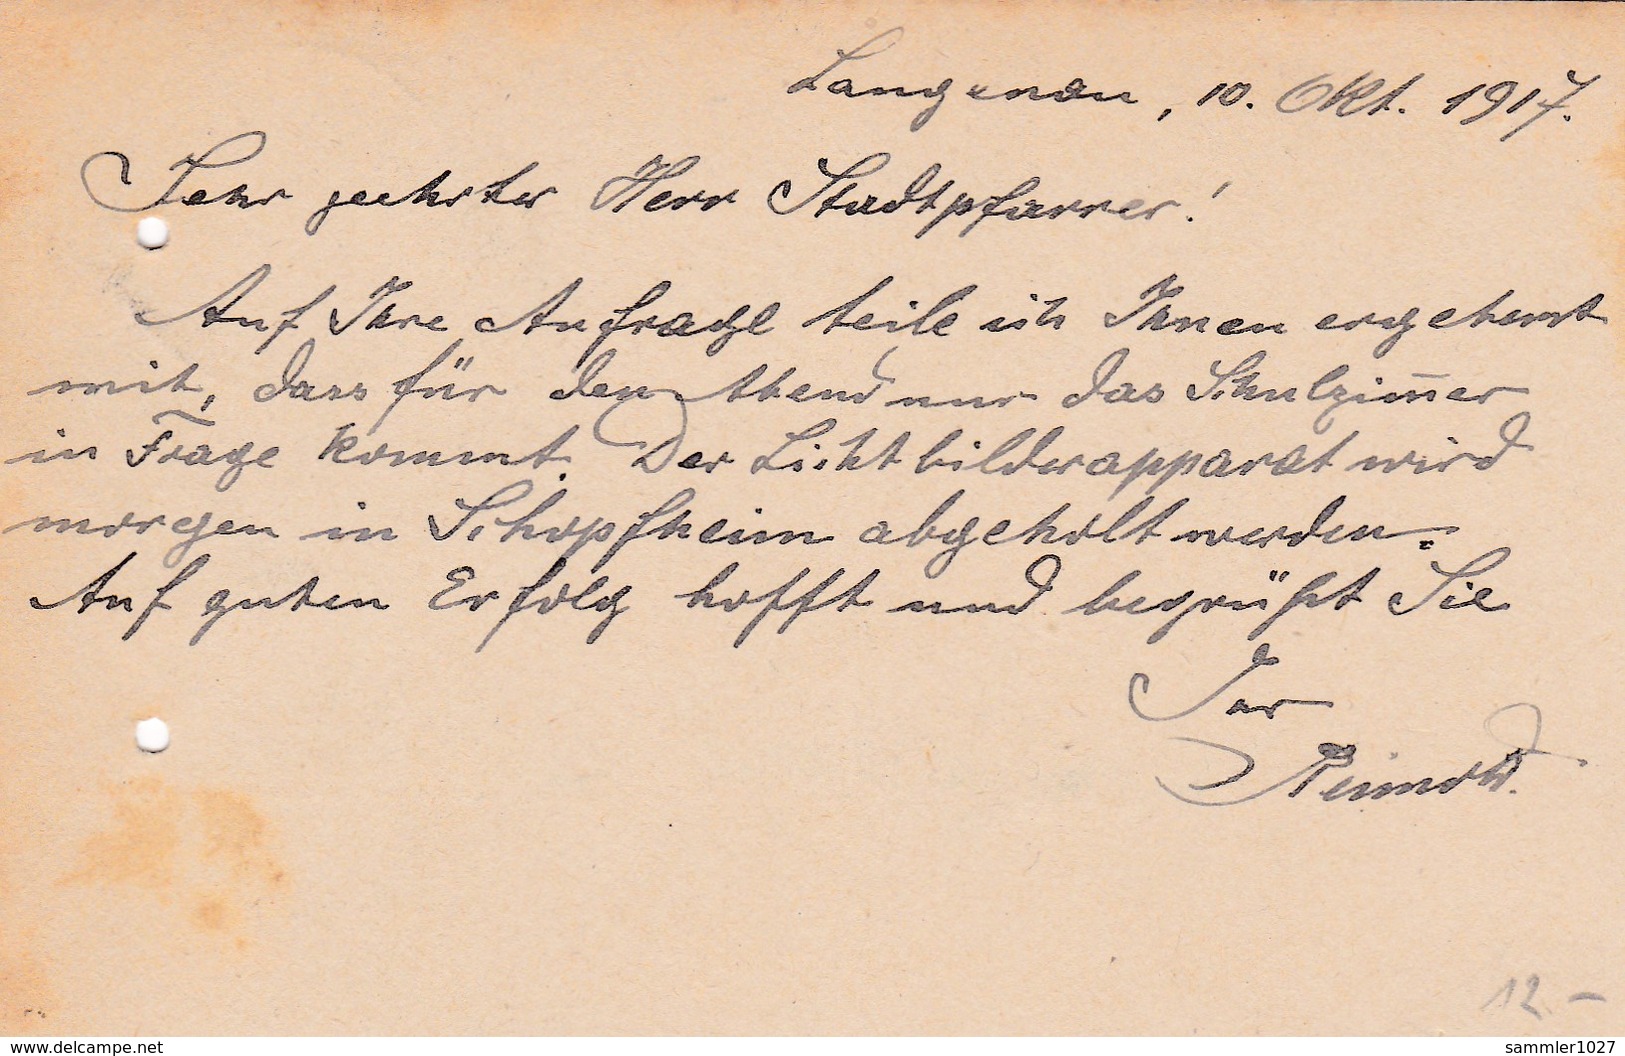 Langenau, 10. Okt. 1917.
Sehr geehrter Herr Stadtpfarrer!
Auf Ihre Anfrage teile ich Ihnen ergebenst
mit, dass für den Abend nur das Schulzim̅er
in Frage kommt. Der Lichtbilderapparat wird
morgen in Schopfheim abgeholt werden.
Auf guten Erfolg hofft und begrüßt Sie
Ihr
12.-
www.delcampe.net
sammler1027